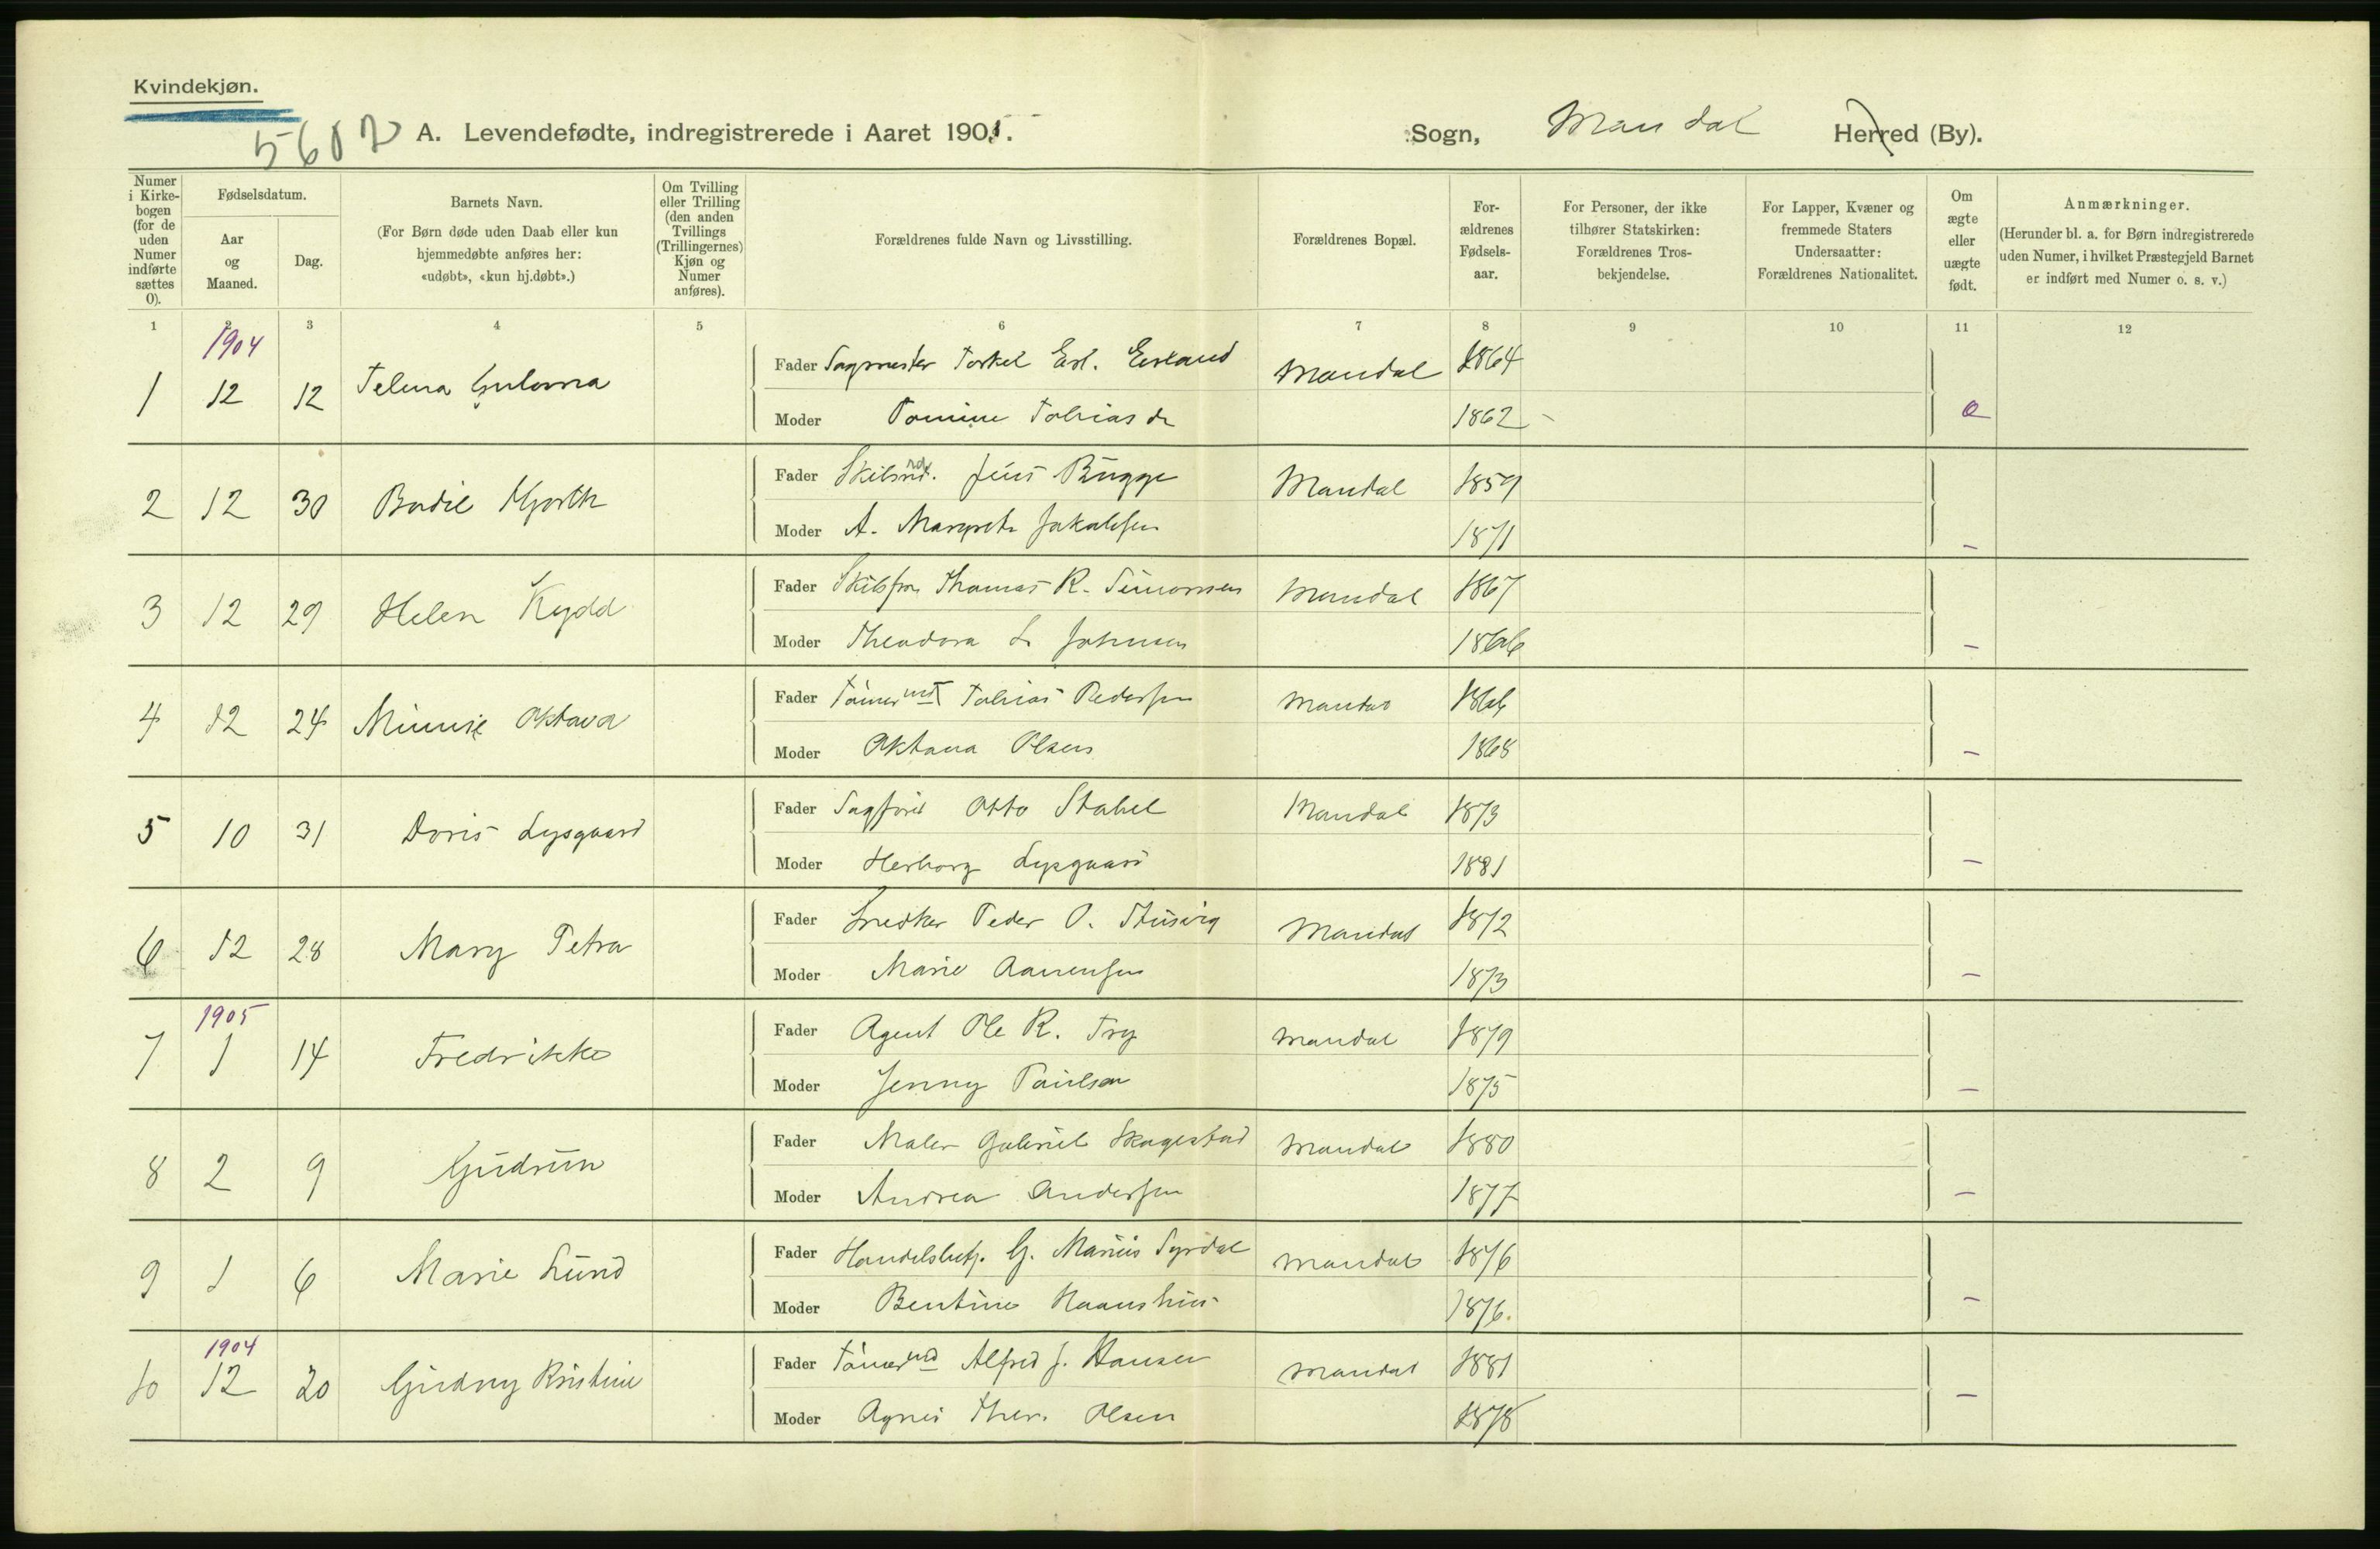 Kvindekjøn.
A. Levendefødte, indregistrerede i Aaret 1905.
Sogn, Mandal Herred (By).
Numer i Kirkebogen (for de uden Numer indførte sættes 0).
Fødselsdatum.
Aar og Maaned.
Dag.
Barnets Navn.
(For Børn døde uden Daab eller kun hjemmedøbte anføres her: «udøbt», «kun hj.døbt».)
Om Tvilling eller Trilling (den anden Tvillings (Trillingernes) Kjøn og Numer anføres).
Forældrenes fulde Navn og Livsstilling.
Forældrenes Bopæl.
Forældrenes Fødselsaar.
For Personer, der ikke tilhører Statskirken: Forældrenes Trosbekjendelse.
For Lapper, Kvæner og fremmede Staters Undersaatter: Forældrenes Nationalitet.
Om ægte eller uægte født.
Anmærkninger.
(Herunder bl. a. for Børn indregistrerede uden Numer, i hvilket Præstegjeld Barnet er indført med Numer o. s. v.)
1 2 3 4 5 6 7 8 9 10 11 12
1904
1 12 12 Telma Fader Sagmester Torkel Mandal 1864
Moder Tomine Tobias d. 1862
2 12 30 Bodil Hjorth Fader Jens Bugge Mandal 1859
Moder A. Margrete Jakobsen 1871 –
3 12 29 Helen Kydd Fader Skibsfører Thomas R. Simonsen Mandal 1867
Moder Theodora L. Johnsen 1866 –
4 12 24 Minnie Oktava Fader Tømmermd Tobias Pedersen Mandal 1866
Moder Oktava Olsen 1868 –
5 10 31 Doris Lysgaard Fader Sagfører Otto Stabel Mandal 1873
Moder Herborg Lysgaard 1881 –
6 12 28 Mary Petra Fader Snedker Peder O. Mandal 1872
Moder Marie Aanensen 1873 –
1905
7 1 14 Fredrikke Fader Agent Ole R. Try Mandal 1879
Moder Jenny Paulsen 1875 –
8 2 9 Gudrun Fader Maler Gabriel Skagestad Mandal 1880
Moder Andrea Andersen 1877 –
9 1 6 Marie Lund Fader Handelsbetj. G. Marius Syrdal Mandal 1876
Moder Bentine Haanshus 1876. –
1904
10 12 20 Gudny Kristine Fader Tømmermd Alfred J. Hansen Mandal 1881
Moder Agnes Ther. Olsen 1878 –